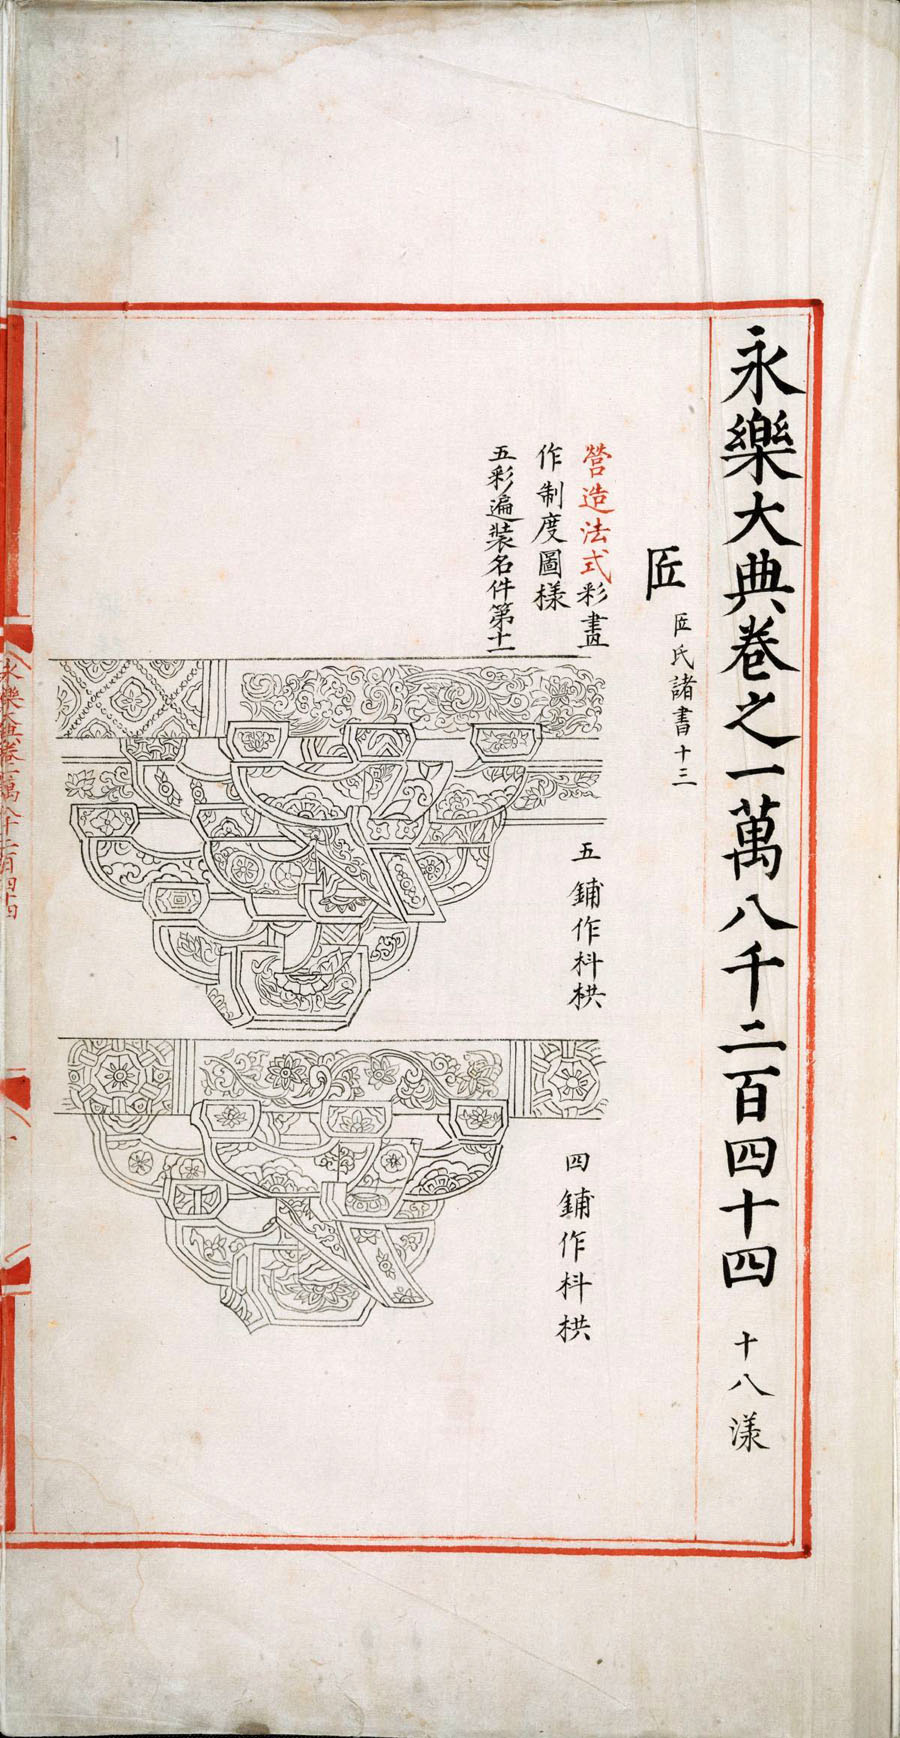 永樂大典卷之一萬八千二百四十四 十八漾
匠 匠氏諸書十三
營造法式彩畫
作制度圖樣
五彩遍裝名件第十一
五鋪作枓栱
四鋪作枓栱
永樂大典卷一萬八千二百四十四